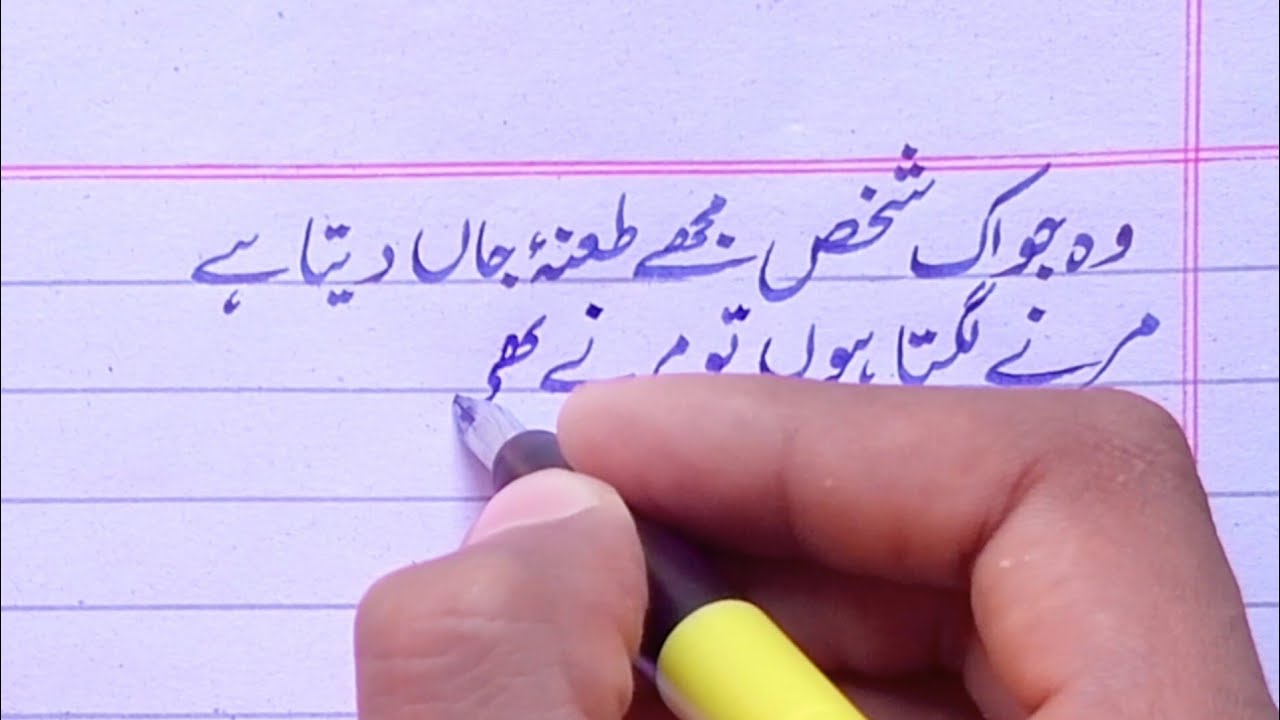 وہ جو اک شخص مجھے طعنۂ جاں دیتا ہے
مرنے لگتا ہوں تو مرنے بھی